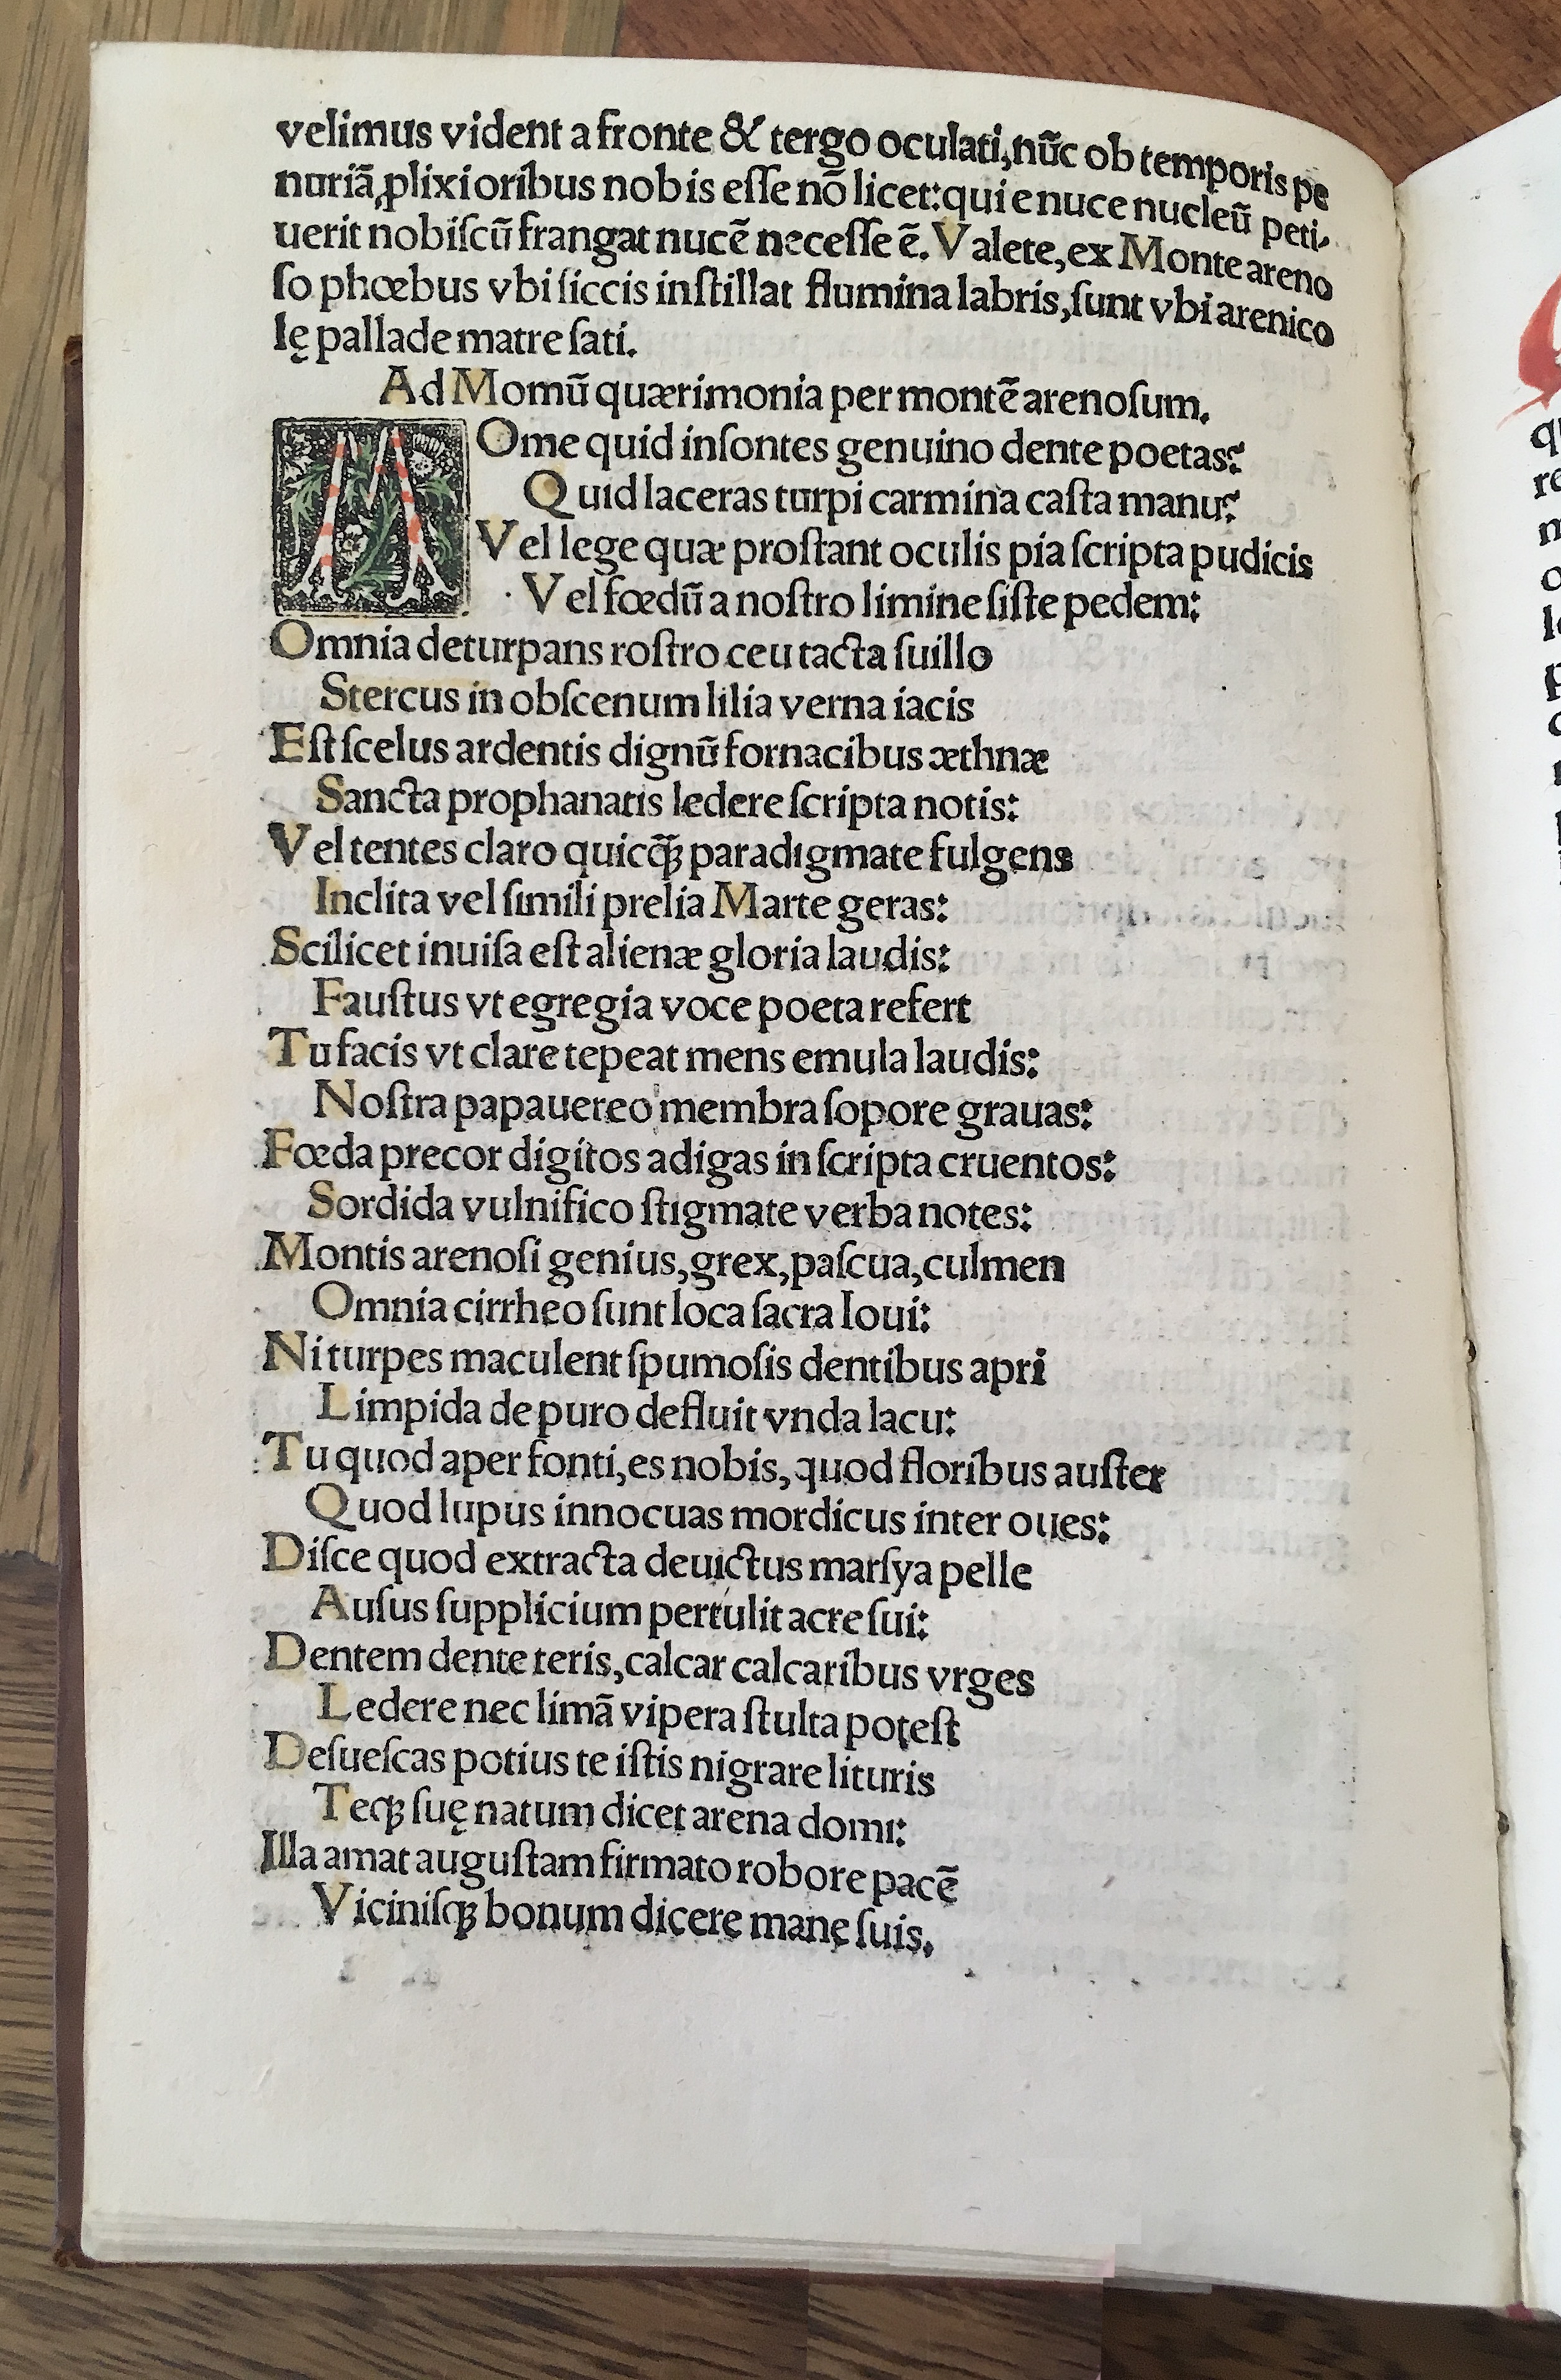 velimus vident a fronte & tergo oculati, nūc ob temporis pe
nuriā, ꝓlixioribus nobis eſſe nō licet: qui e nuce nucleū peti-
uerit nobiſcū frangat nucē necesſe ē. Valete, ex Monte areno
ſo phœbus vbi ſiccis inſtillat flumina labris, ſunt vbi arenico
lę pallade matre ſati.
Ad Momū quærimonia per montē arenoſum.
MOme quid inſontes genuino dente poetas?
Quid laceras turpi carmina caſta manu?
Vel lege quæ proſtant oculis pia ſcripta pudicis
Vel fœdū a noſtro limine ſiſte pedem:
Omnia deturpans roſtro ceu tacta ſuillo
Stercus in obſcenum lilia verna iacis
Eſt ſcelus ardentis dignū fornacibus æthnæ
Sancta prophanatis ledere ſcripta notis:
Vel tentes claro quicq̃ꝫ paradigmate fulgens
Inclita vel ſimili prelia Marte geras:
Scilicet inuiſa eſt alienæ gloria laudis:
Fauſtus vt egregia voce poeta refert
Tu facis vt clare tepeat mens emula laudis:
Noſtra papauereo membra ſopore grauas:
Fœda precor digitos adigas in ſcripta cruentos:
Sordida vulnifico ſtigmate verba notes:
Montis arenoſi genius, grex, paſcua, culmen
Omnia cirrheo ſunt loca ſacra Ioui:
Ni turpes maculent ſpumoſis dentibus apri
Limpida de puro defluit vnda lacu:
Tu quod aper fonti, es nobis, quod floribus auſter
Quod lupus innocuas mordicus inter oues:
Diſce quod extracta deuictus marſya pelle
Auſus ſupplicium pertulit acre ſui:
Dentem dente teris, calcar calcaribus vrges
Ledere nec limā vipera ſtulta poteſt
Deſueſcas potius te iſtis nigrare lituris
Teqꝫ ſuę natum dicet arena domi:
Illa amat auguſtam firmato robore pacē
Viciniſqꝫ bonum dicere mane ſuis.